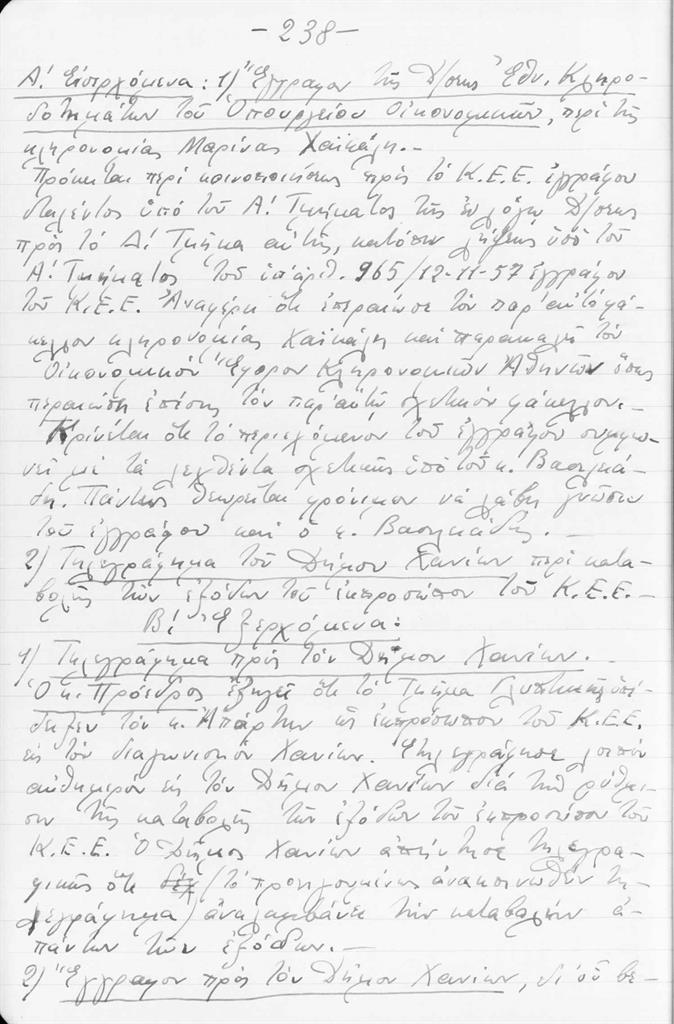 -238-
Α! Εἰσερχόμενα: 1) Ἔγγραφον τῆς Δ/σεως Ἐθν. Κληρο-
δοτημάτων τοῦ Ὑπουργείου Οἰκονομικῶν, περί τῆς
κληρονομίας Μαρίνας Χαϊκάλη.-
Πρόκειται περί κοινοποιήσεως πρός τό Κ.Ε.Ε. ἐγγράφου
σταλέντος ὑπό τοῦ Α! Τμήματος τῆς ἐν λόγῳ Δ/σεως
πρός τό Δ! Τμῆμα αὐτῆς, κατόπιν λήψεως ὑπό τοῦ
Α! Τμήματος τοῦ ὑπ' ἀριθ. 965/12-11-57 ἐγγράφου
τοῦ Κ.Ε.Ε. Ἀναφέρει ὅτι ἐπεραίωσε τόν παρ' αὐτῷ φά-
κελλον κληρονομίας Χαϊκάλη καί παρακαλεῖ τόν
Οἰκονομικόν Ἔφορον Κληρονομιῶν Ἀθηνῶν ὅπως
περαιώσῃ ἐπίσης τόν παρ' αὐτῷ σχετικόν φάκελλον.-
Κρίνεται ὅτι τό περιεχόμενον τοῦ ἐγγράφου συμφω-
νεῖ μέ τά λεχθέντα σχετικῶς ὑπό τοῦ κ. Βασιλειά-
δη. Πάντως θεωρεῖται φρόνιμον νά λάβῃ γνῶσιν
τοῦ ἐγγράφου καί ὁ κ. Βασιλειάδης.-
2) Τηλεγράφημα τοῦ Δήμου Χανίων περί κατα-
βολῆς τῶν ἐξόδων τοῦ ἐκπροσώπου τοῦ Κ.Ε.Ε.-
Β! Ἐξερχόμενα:
1) Τηλεγράφημα πρός τόν Δῆμον Χανίων.-
Ὁ κ. Πρόεδρος ἐξηγεῖ ὅτι τό Τμῆμα Γλυπτικῆς ὑπέ-
δειξεν τόν κ. Ἀπάρτην ὡς ἐκπρόσωπον τοῦ Κ.Ε.Ε.
εἰς τόν διαγωνισμόν Χανίων. Ἐτηλεγράφησε λοιπόν
αὐθημερόν εἰς τόν Δῆμον Χανίων διά τήν ρύθμι-
σιν τῆς καταβολῆς τῶν ἐξόδων τοῦ ἐκπροσώπου τοῦ
Κ.Ε.Ε. Ὁ Δῆμος Χανίων ἀπήντησε τηλεγρα-
φικῶς ὅτι (τό προηγουμένως ἀνακοινωθέν τη-
λεγράφημα) ἀναλαμβάνει τήν καταβολήν ἁ-
πάντων τῶν ἐξόδων.-
2) Ἔγγραφον πρός τόν Δῆμον Χανίων, δι' οὗ βε-